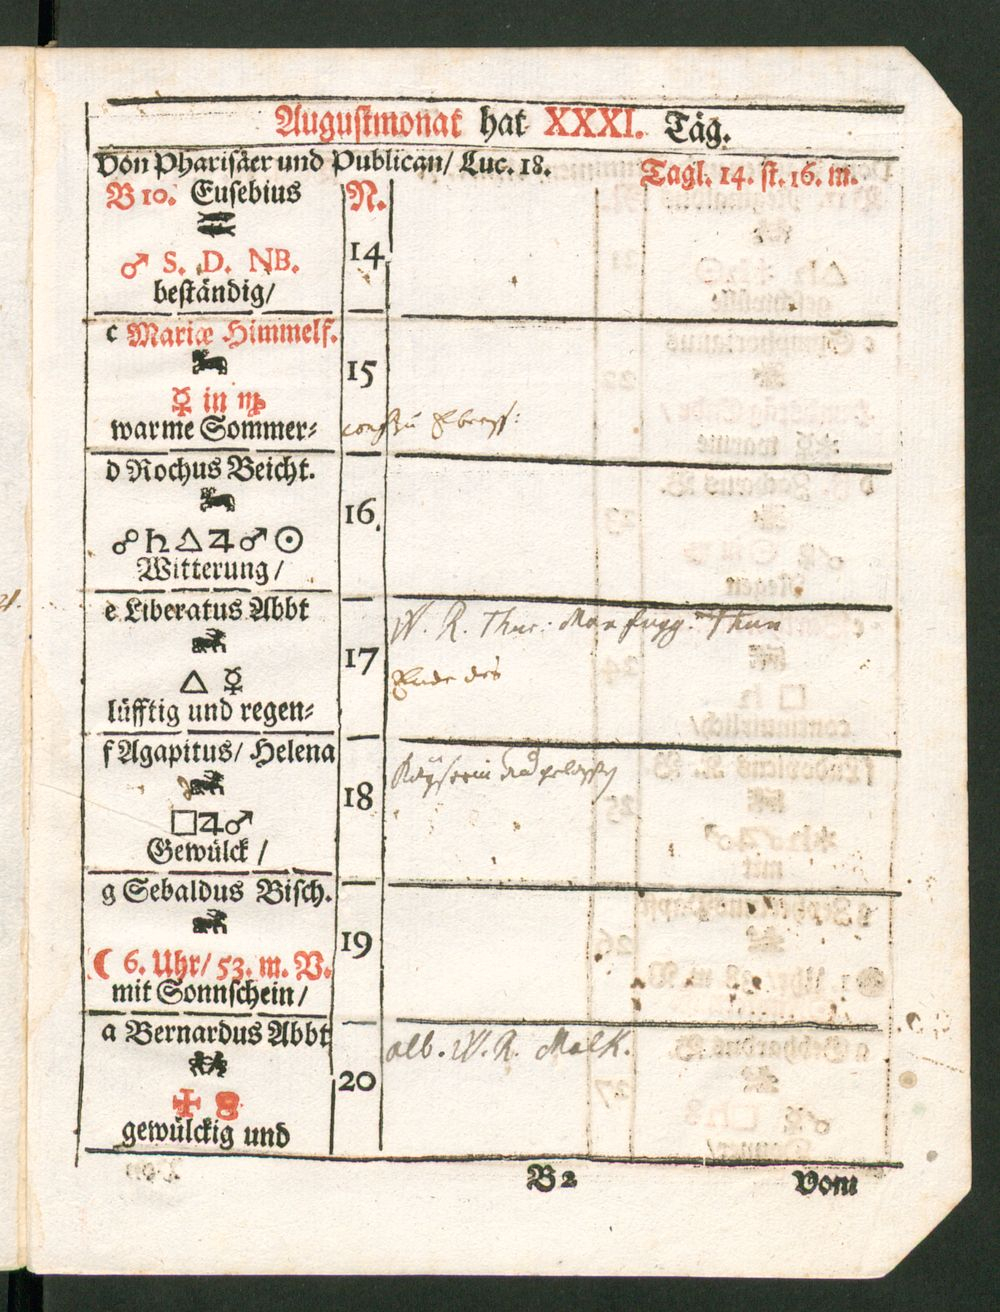 Augustmonat hat XXXI. Täg.
Von Pharisäer und Publican/ Luc. 18.
Tagl. 14. st. 16. m.
B 10. Eusebius
N.
♂ S. D. NB.
14
beständig/
c Mariæ Himmelf.
15
☿ in ♍
warme Sommer-
d Rochus Beicht.
16.
☍ ♄ △ ♃ ♂ ☉
Witterung /
e Liberatus Abbt
W. R. Thur:
17
△ ☿
Ende des
lüfftig und regen-
f Agapitus/ Helena
18
□ ♃ ♂
Gewülck /
g Sebaldus Bisch.
19
☾ 6. Uhr/ 53. m. V.
mit Sonnschein /
a Bernardus Abbt
alb. W. R. Molk.
20
gewülckig und
B 2
Vom